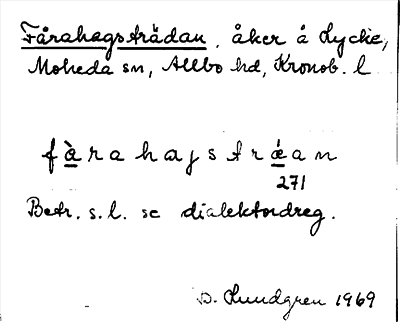 Fårahagsträdan, åker å Lycke,
Moheda sn, Allbo hd, Kronob. l
fàrahagstrǽan
271
Betr. s.l. se dialektordreg.
D. Lundgren 1969